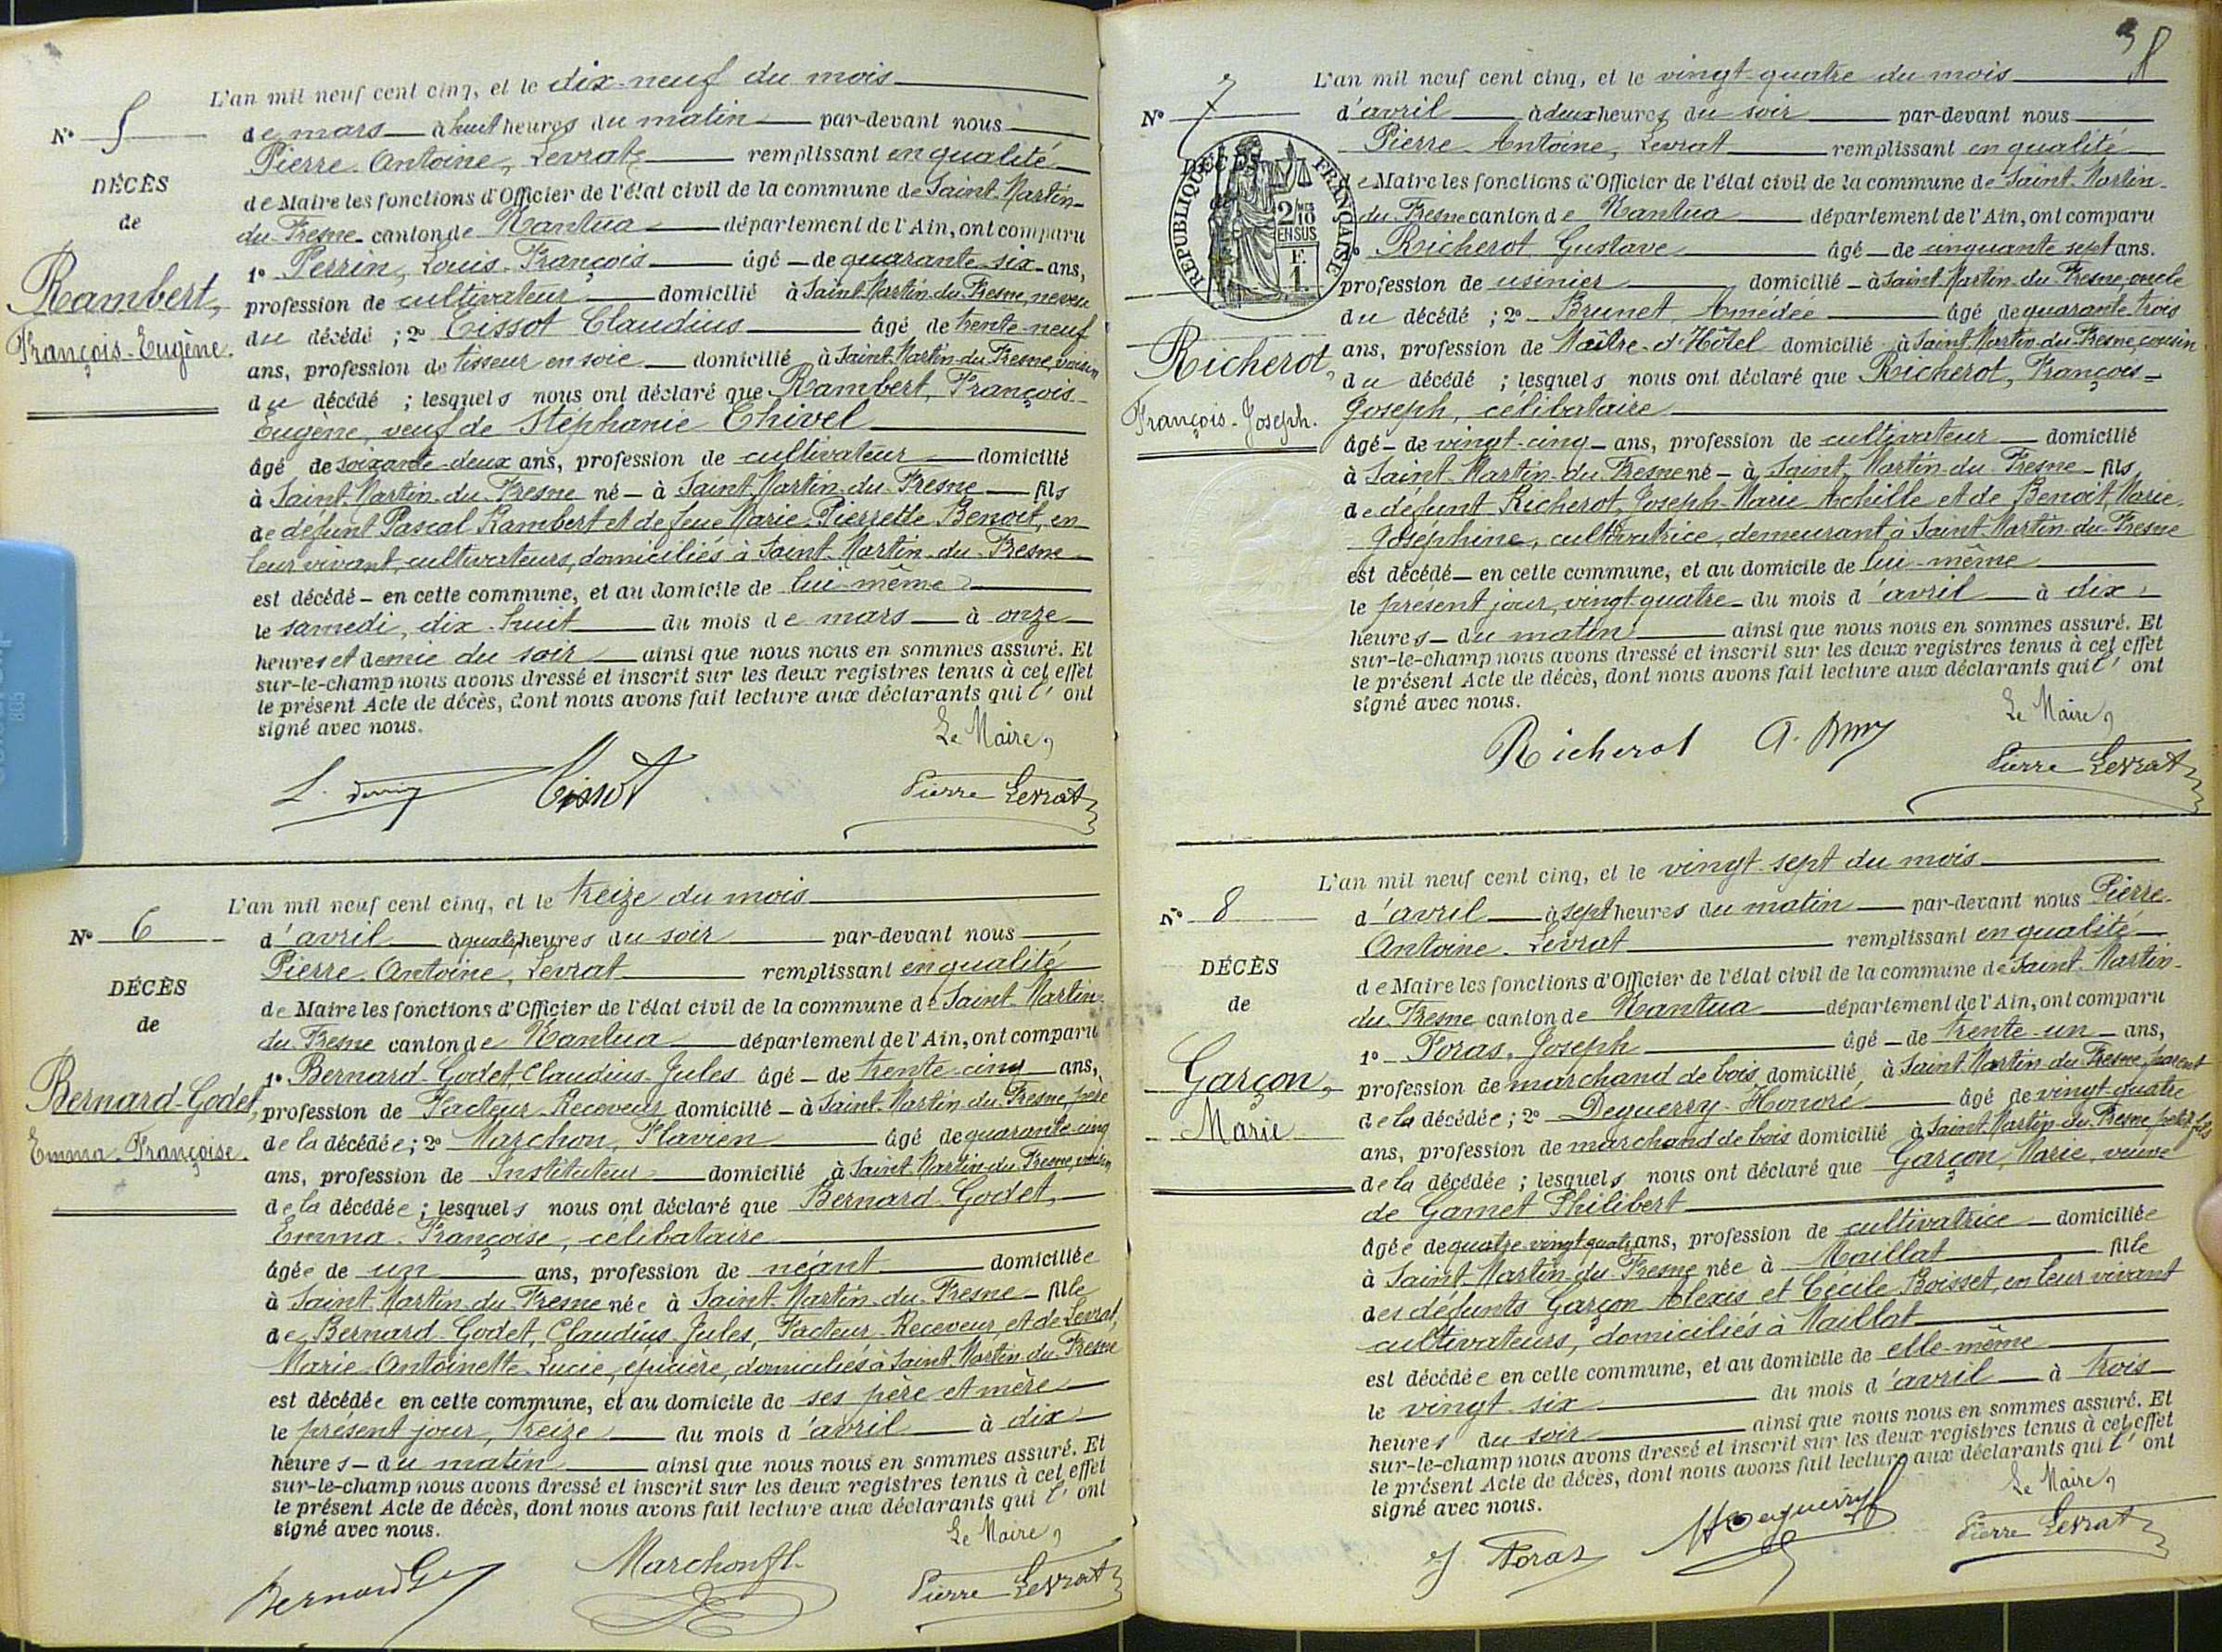 L'an mil neuf cent cinq, et le dix-neuf du mois
N° 5
de mars à huit heures du matin par-devant nous
Pierre Antoine, Levrat remplissant en qualité
DÉCÈS
de Maire les fonctions d'Officier de l'état civil de la commune de Saint-Martin-
de
du-Fresne canton de Nantua département de l'Ain, ont comparu
1° Perrin, Louis-François âgé de quarante-six ans,
Rambert,
profession de cultivateur domicilié à Saint-Martin-du-Fresne, neveu
François-Eugène.
du décédé ; 2° Tissot Claudius âgé de trente-neuf
ans, profession de tisseur en soie domicilié à Saint-Martin-du-Fresne, voisin
du décédé ; lesquels nous ont déclaré que Rambert, François-
Eugène, veuf de Stéphanie Chivel
âgé de soixante-deux ans, profession de cultivateur domicilié
à Saint-Martin-du-Fresne né à Saint-Martin-du-Fresne fils
de défunt Pascal Rambert et de feue Marie-Pierrette Benoit, en
leur vivant, cultivateurs, domiciliés à Saint-Martin-du-Fresne
est décédé en cette commune, et au domicile de lui-même
le samedi, dix-huit du mois de mars à onze
heures et demie du soir ainsi que nous nous en sommes assuré. Et
sur-le-champ nous avons dressé et inscrit sur les deux registres tenus à cet effet
le présent Acte de décès, dont nous avons fait lecture aux déclarants qui l'ont
signé avec nous.
Le Maire,
L. Perrin Tissot Pierre Levrat
L'an mil neuf cent cinq, et le treize du mois
N° 6
d'avril à quatre heures du soir par-devant nous
Pierre Antoine, Levrat remplissant en qualité
DÉCÈS
de Maire les fonctions d'Officier de l'état civil de la commune de Saint-Martin-
de
du Fresne canton de Nantua département de l'Ain, ont comparu
1° Bernard-Godet, Claudius-Jules âgé de trente-cinq ans,
Bernard-Godet,
profession de Facteur-Receveur domicilié à Saint-Martin-du-Fresne, père
Emma-Françoise.
de la décédée ; 2° Marchon, Flavien âgé de quarante-cinq
ans, profession de Instituteur domicilié à Saint-Martin-du-Fresne, voisin
de la décédée ; lesquels nous ont déclaré que Bernard-Godet,
Emma-Françoise, célibataire
âgée de un ans, profession de néant domiciliée
à Saint-Martin-du-Fresne née à Saint-Martin-du-Fresne fille
de Bernard-Godet, Claudius-Jules, Facteur-Receveur, et de Levrat,
Marie-Antoinette-Lucie, épicière, domiciliés à Saint-Martin-du-Fresne
est décédée en cette commune, et au domicile de ses père et mère
le présent jour, treize du mois d'avril à dix
heures du matin ainsi que nous nous en sommes assuré. Et
sur-le-champ nous avons dressé et inscrit sur les deux registres tenus à cet effet
le présent Acte de décès, dont nous avons fait lecture aux déclarants qui l'ont
signé avec nous.
Le Maire,
Bernard G Marchon Fl. Pierre Levrat
38
L'an mil neuf cent cinq, et le vingt-quatre du mois
N° 7
d'avril à deux heures du soir par-devant nous
Pierre Antoine, Levrat remplissant en qualité
DÉCÈS
RÉPUBLIQUE FRANÇAISE
2/10 EN SUS
1 F.
de Maire les fonctions d'Officier de l'état civil de la commune de Saint-Martin-
du-Fresne canton de Nantua département de l'Ain, ont comparu
1° Richerot Gustave âgé de cinquante sept ans.
profession de usinier domicilié à Saint-Martin-du-Fresne, oncle
du décédé ; 2° Brunet, Amédée âgé de quarante trois
Richerot,
ans, profession de Maître-d'Hôtel domicilié à Saint-Martin-du-Fresne, cousin
du décédé ; lesquels nous ont déclaré que Richerot, François-
François-Joseph.
Joseph, célibataire
âgé de vingt-cinq ans, profession de cultivateur domicilié
à Saint-Martin-du-Fresne né à Saint-Martin-du-Fresne fils
de défunt Richerot, Joseph-Marie Achille et de Benoit, Marie-
Joséphine, cultivatrice, demeurant à Saint-Martin-du-Fresne
est décédé en cette commune, et au domicile de lui-même
le présent jour, vingt-quatre du mois d'avril à dix
heures du matin ainsi que nous nous en sommes assuré. Et
sur-le-champ nous avons dressé et inscrit sur les deux registres tenus à cet effet
le présent Acte de décès, dont nous avons fait lecture aux déclarants qui l'ont
signé avec nous.
Le Maire,
Richerot Pierre Levrat
L'an mil neuf cent cinq, et le vingt-sept du mois
N° 8
d'avril à sept heures du matin par-devant nous Pierre-
Antoine Levrat remplissant en qualité
DÉCÈS
de Maire les fonctions d'Officier de l'état civil de la commune de Saint-Martin-
de
du-Fresne canton de Nantua département de l'Ain, ont comparu
1° Foras, Joseph âgé de trente-un ans,
Garçon,
profession de marchand de bois domicilié à Saint-Martin-du-Fresne, parent
Marie
de la décédée ; 2° Deguerry Honoré âgé de vingt-quatre
ans, profession de marchand de bois domicilié à Saint-Martin-du-Fresne petit fils
de la décédée ; lesquels nous ont déclaré que Garçon, Marie, veuve
de Gamet Philibert
âgée de quatre-vingt quatre ans, profession de cultivatrice domiciliée
à Saint-Martin-du-Fresne née à Maillat fille
des défunts Garçon Alexis et Cécile Boisset, en leur vivant
cultivateurs, domiciliés à Maillat
est décédée en cette commune, et au domicile de elle-même
le vingt-six du mois d'avril à trois
heures du soir ainsi que nous nous en sommes assuré. Et
sur-le-champ nous avons dressé et inscrit sur les deux registres tenus à cet effet
le présent Acte de décès, dont nous avons fait lecture aux déclarants qui l'ont
signé avec nous.
Le Maire,
J. Foras H Deguerry Pierre Levrat